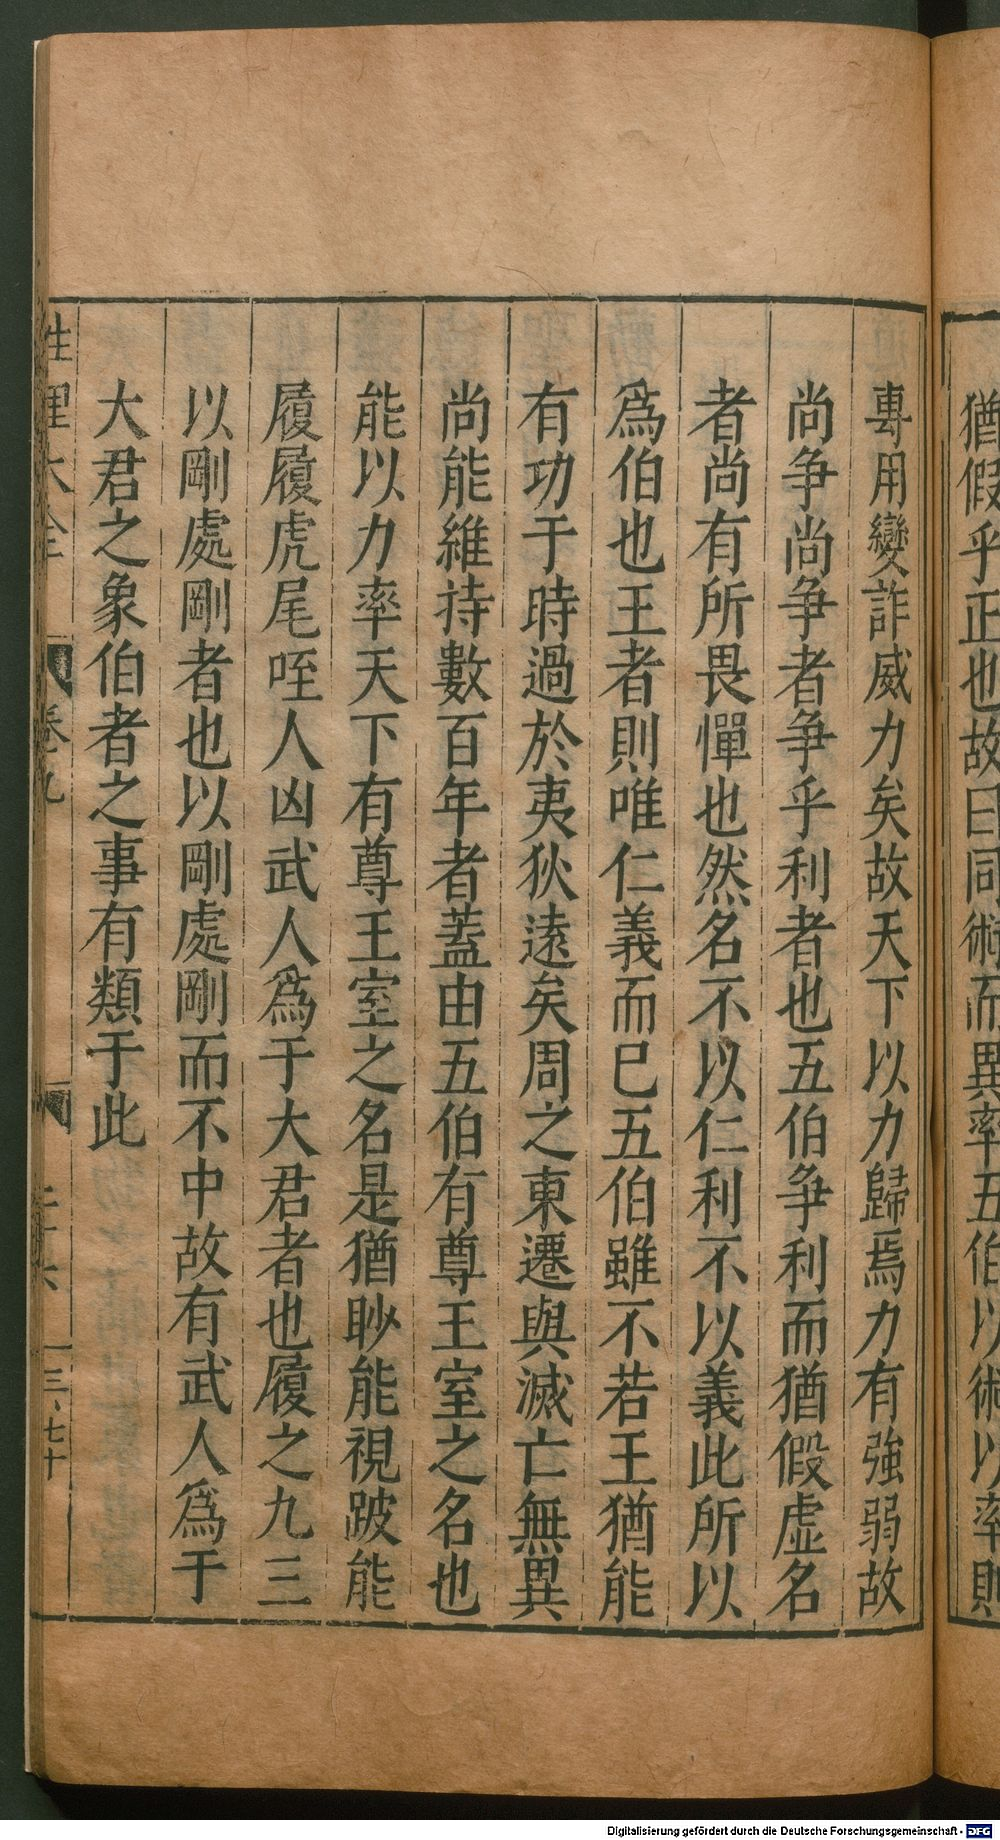 猶假乎正也故曰同術而異率五伯以術以率則
專用變詐威力矣故天下以力歸焉力有強弱故
尚爭尚爭者爭乎利者也五伯爭利而猶假虛名
者尚有所畏憚也然名不以仁利不以義此所以
爲伯也王者則唯仁義而已五伯雖不若王猶能
有功于時過於夷狄遠矣周之東遷與滅亡無異
尚能維持數百年者蓋由五伯有尊王室之名也
能以力率天下有尊王室之名是猶眇能視跛能
履履虎尾咥人凶武人爲于大君者也履之九三
以剛處剛者也以剛處剛剛而不中故有武人爲于
大君之象伯者之事有類于此
性理大全 卷九 二十六 一三、七十
Digitalisierung gefördert durch die Deutsche Forschungsgemeinschaft - DFG